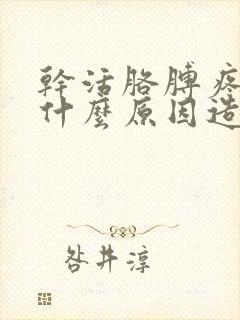 幹活胳膊疼
什麼原因造
咎井淳